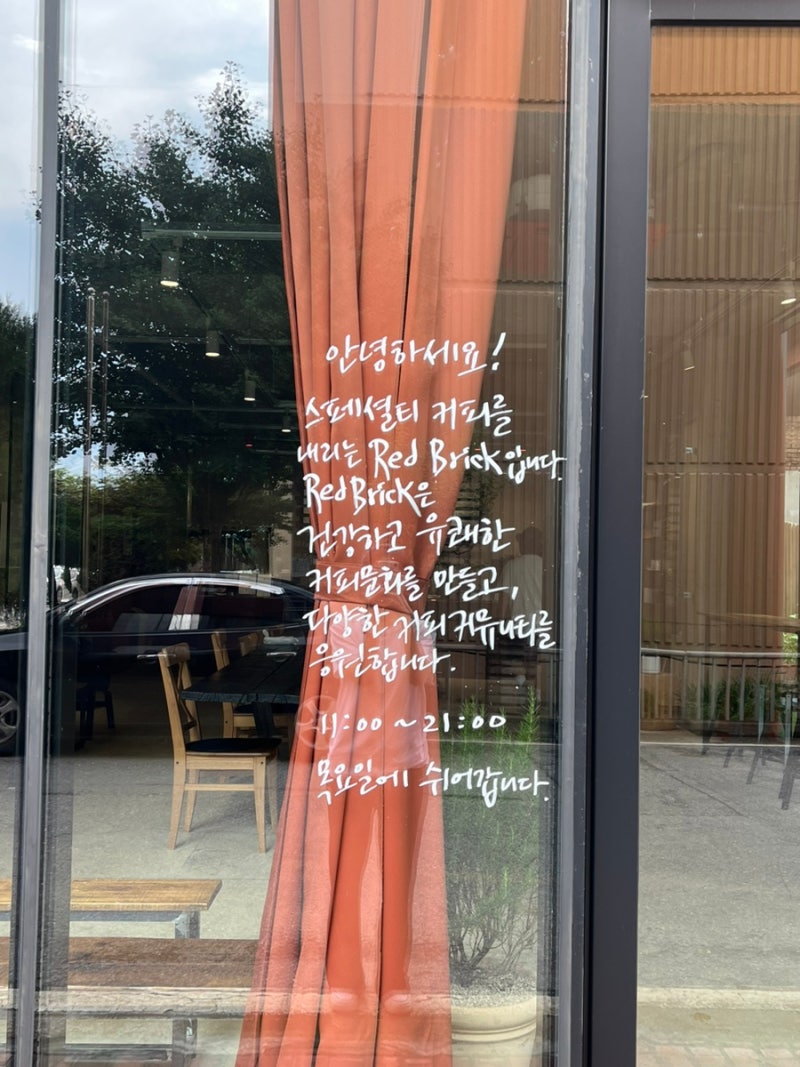 안녕하세요!
스페셜티 커피를
내리는 Red Brick입니다.
Red Brick은
건강하고 유쾌한
커피문화를 만들고,
다양한 커피커뮤니티를
응원합니다.
11:00~21:00
목요일에 쉬어갑니다.